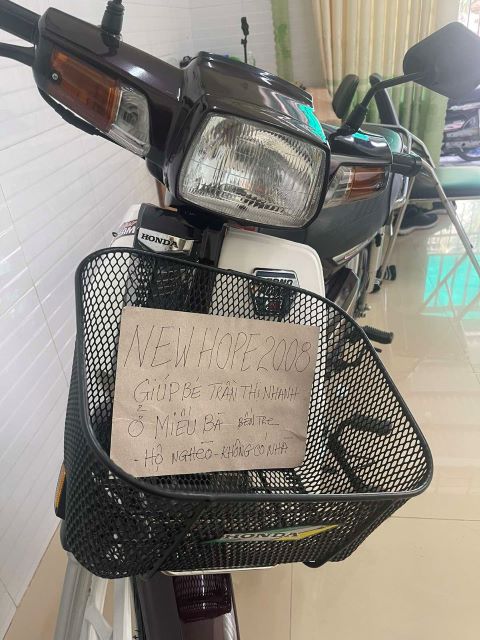 HONDA
NEW HOPE 2008
GIÚP BÉ TRẦN THỊ NHANH
Ở MIẾU BÀ BẾN TRE
- HỘ NGHÈO - KHÔNG CÓ NHÀ
HONDA